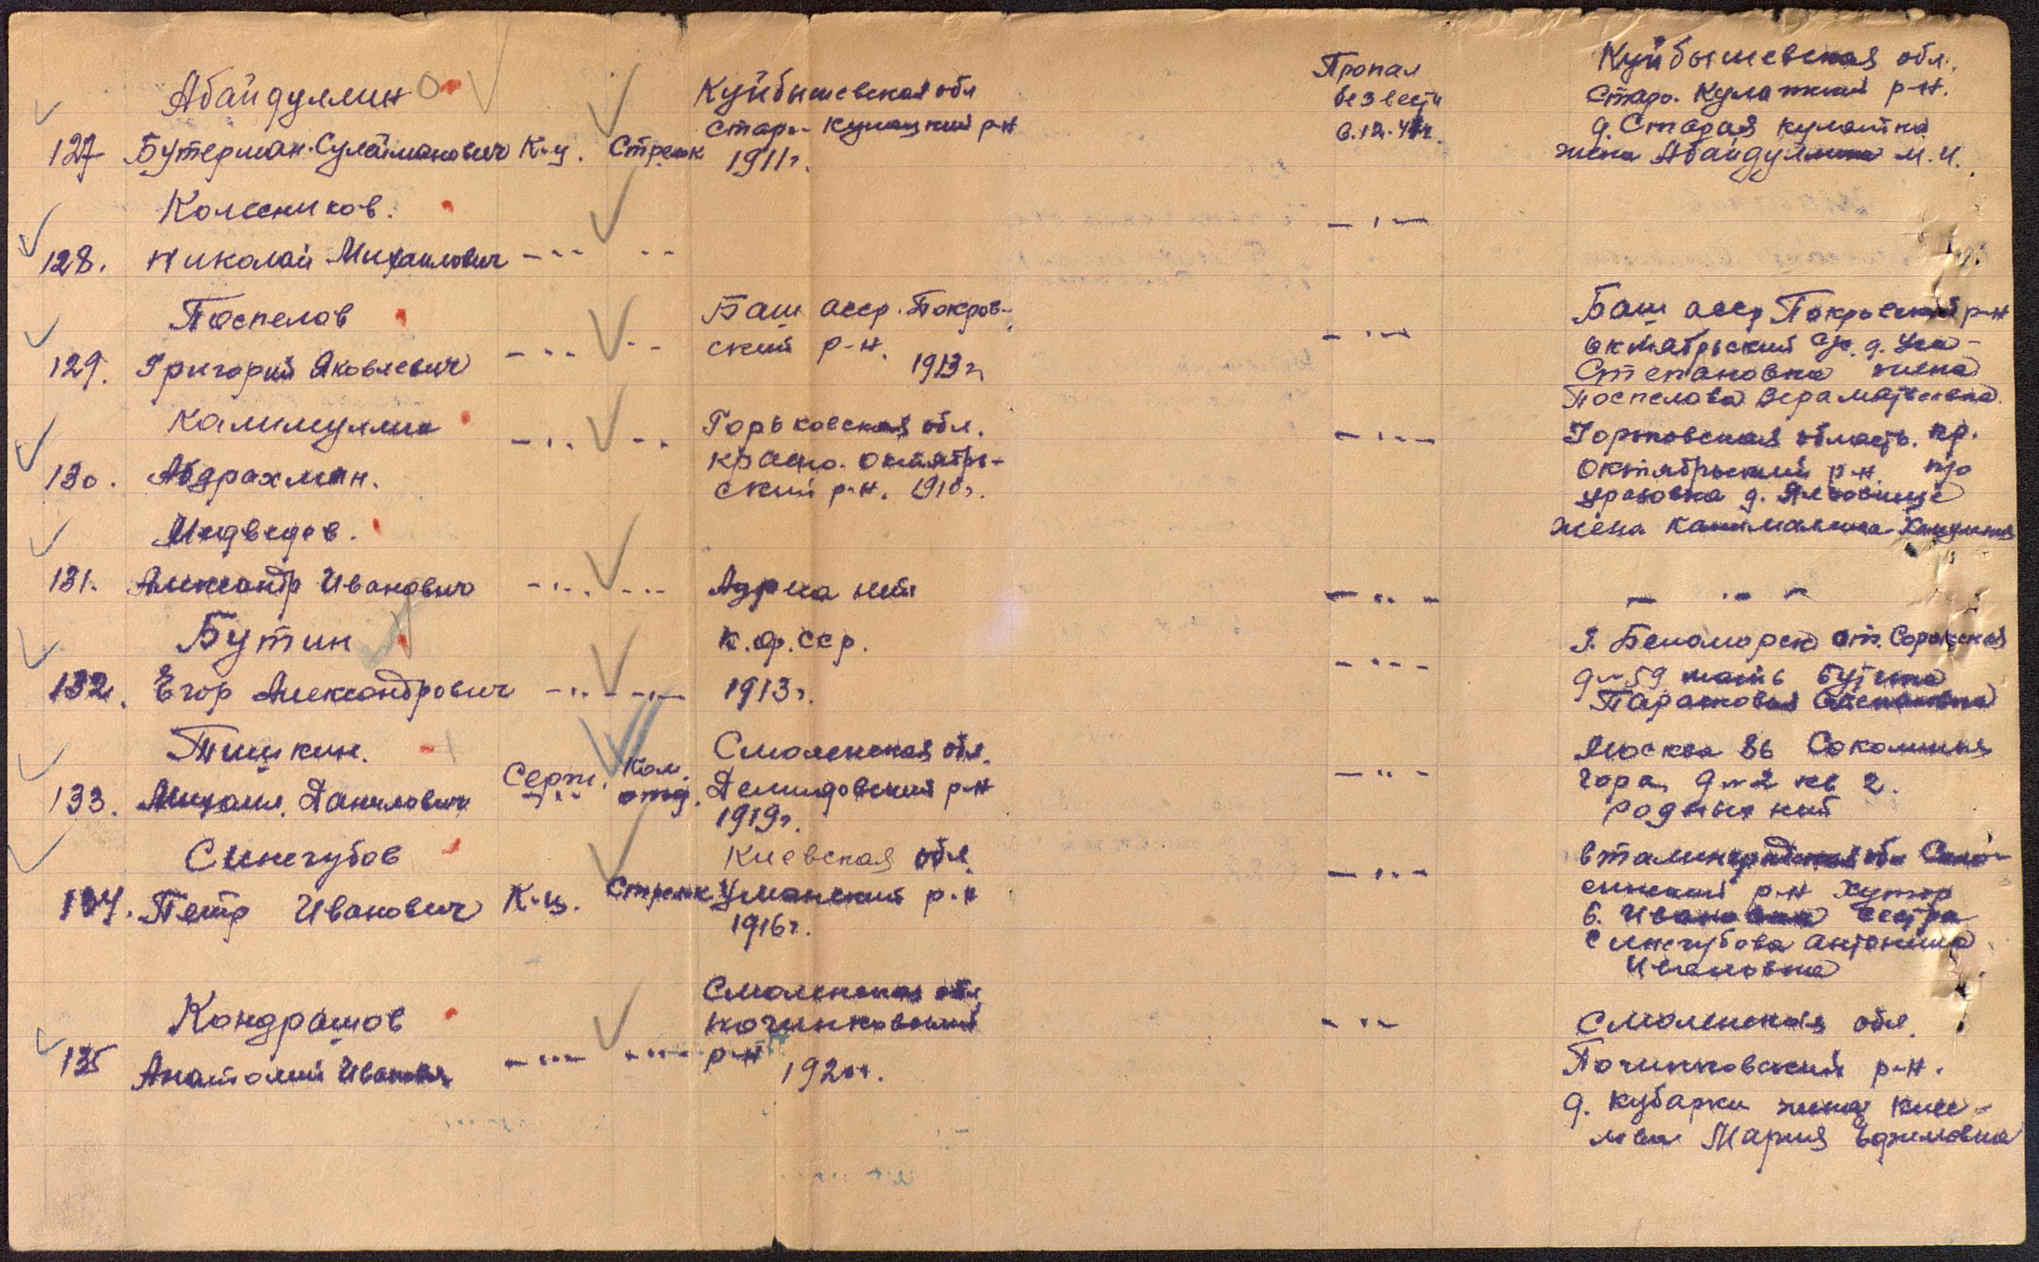 Абайдуллин
127 Бутерман Сулейманович К-ц. Стрелок
Куйбышевская обл
Старо-Кулацкий р-н
1911г.
Пропал
без вести
6.12.41г.
Куйбышевская обл.
Старо. Кулаткий р-н.
д. Старая кулатка
жена Абайдуллина М.И.
Колесников.
128. Николай Михайлович -"- -"-
-"-
Поспелов
129. Григорий Яковлевич -"- -"-
Баш асср. Покров-
ский р-н.
1913г
-"-
Баш асср Покровский р-н
октябрьский с/с. д.
Степановка жена
Поспелова Вера Матвеевна
Калимуллин
130. Абдрахман. -"- -"-
Горьковская обл.
красно. октябрь-
ский р-н. 1910г.
-"-
Горьковская область. кр.
Октябрьский р-н п/о
уразовка д.
жена Ханумия
Медведев.
131. Александр Иванович -"- -"-
Адреса нет
-"- -"-
Бутин
132. Егор Александрович -"- -"-
К.ф.сср.
1913г.
-"-
г. Беломорск Сорокская
д-59 мать Бутина
Парасковья Степановна
Тишкин.
133. Михаил. Данилович Серж. Ком.
отд.
Смоленская обл.
Демидовский р-н
1919г.
-"-
Москва 86 Соколиная
гора д-2 кв 2.
родных нет
Синегубов
134. Петр Иванович К-ц. Стрелок
Киевская обл
Уманский р-н
1916г.
-"-
Сталинградская обл
р-н Хутор
Б. Ивановка сестра
Синегубова Антонина
Ивановна
Кондрашов
135 Анатолий Иванович -"- -"-
Смоленская обл
починковский
р-н
192
-"-
Смоленская обл.
Починковский р-н.
д. Кубарки жена
Мария Ефимовна